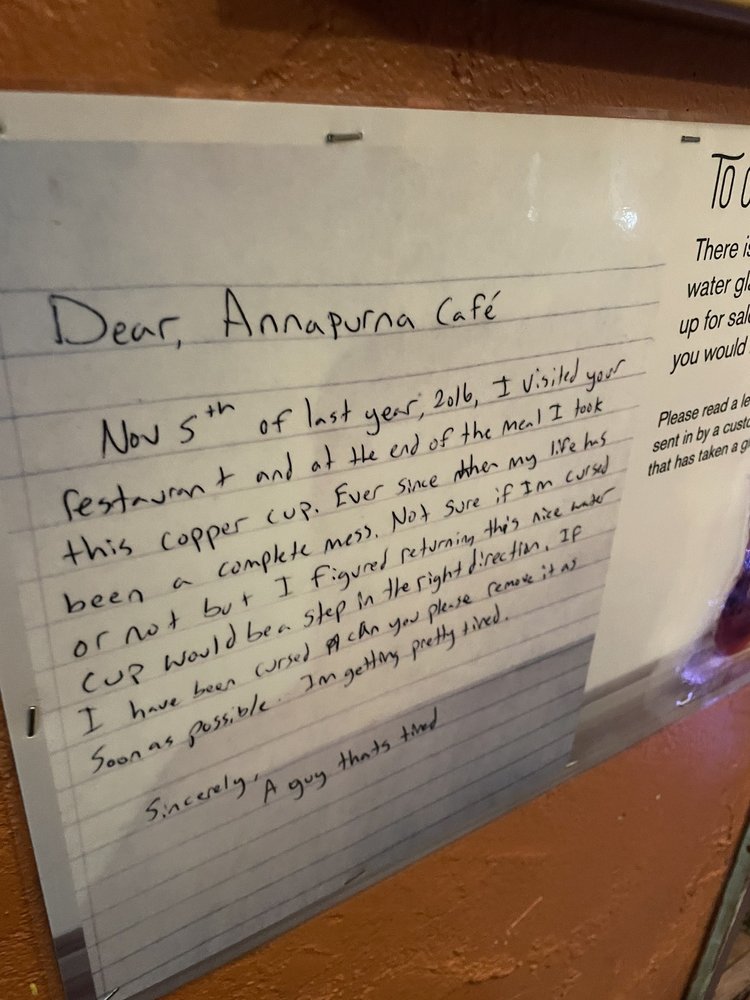 Dear, Annapurna Café
Nov 5th of last year, 2016, I visited your
restaurant and at the end of the meal I took
this copper cup. Ever since then my life has
been a complete mess. Not sure if Im cursed
or not but I figured returning this nice water
cup would be a step in the right direction. If
I have been cursed can you please remove it as
soon as possible. Im getting pretty tired.
Sincerely,
A guy thats tired
To
There is
water
up for
you would
Please read a
sent in by a
that has taken a